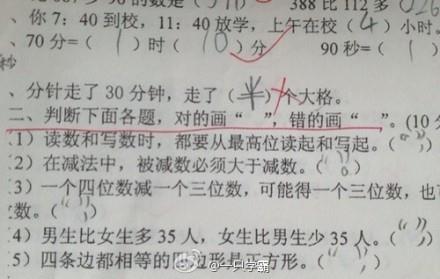 388 比 112 多
你 7：40 到校，11：40 放学，上午在校（4）小时。
70 分＝（1）时（10）分 90 秒＝（1
秒
分针走了 30 分钟，走了（半）个大格。
二、判断下面各题，对的画“ ”，错的画“ ”。(10 分
1）读数和写数时，都要从最高位读起和写起。（“ ”）
2）在减法中，被减数必须大于减数。（“ ”）
3）一个四位数减一个三位数，可能得一个三位数，也可
数。（“ ”）
4）男生比女生多 35 人，女生比男生少 35 人。（“ ”）
5）四条边都相等的四边形是正方形。（“ ”）
@一只学霸